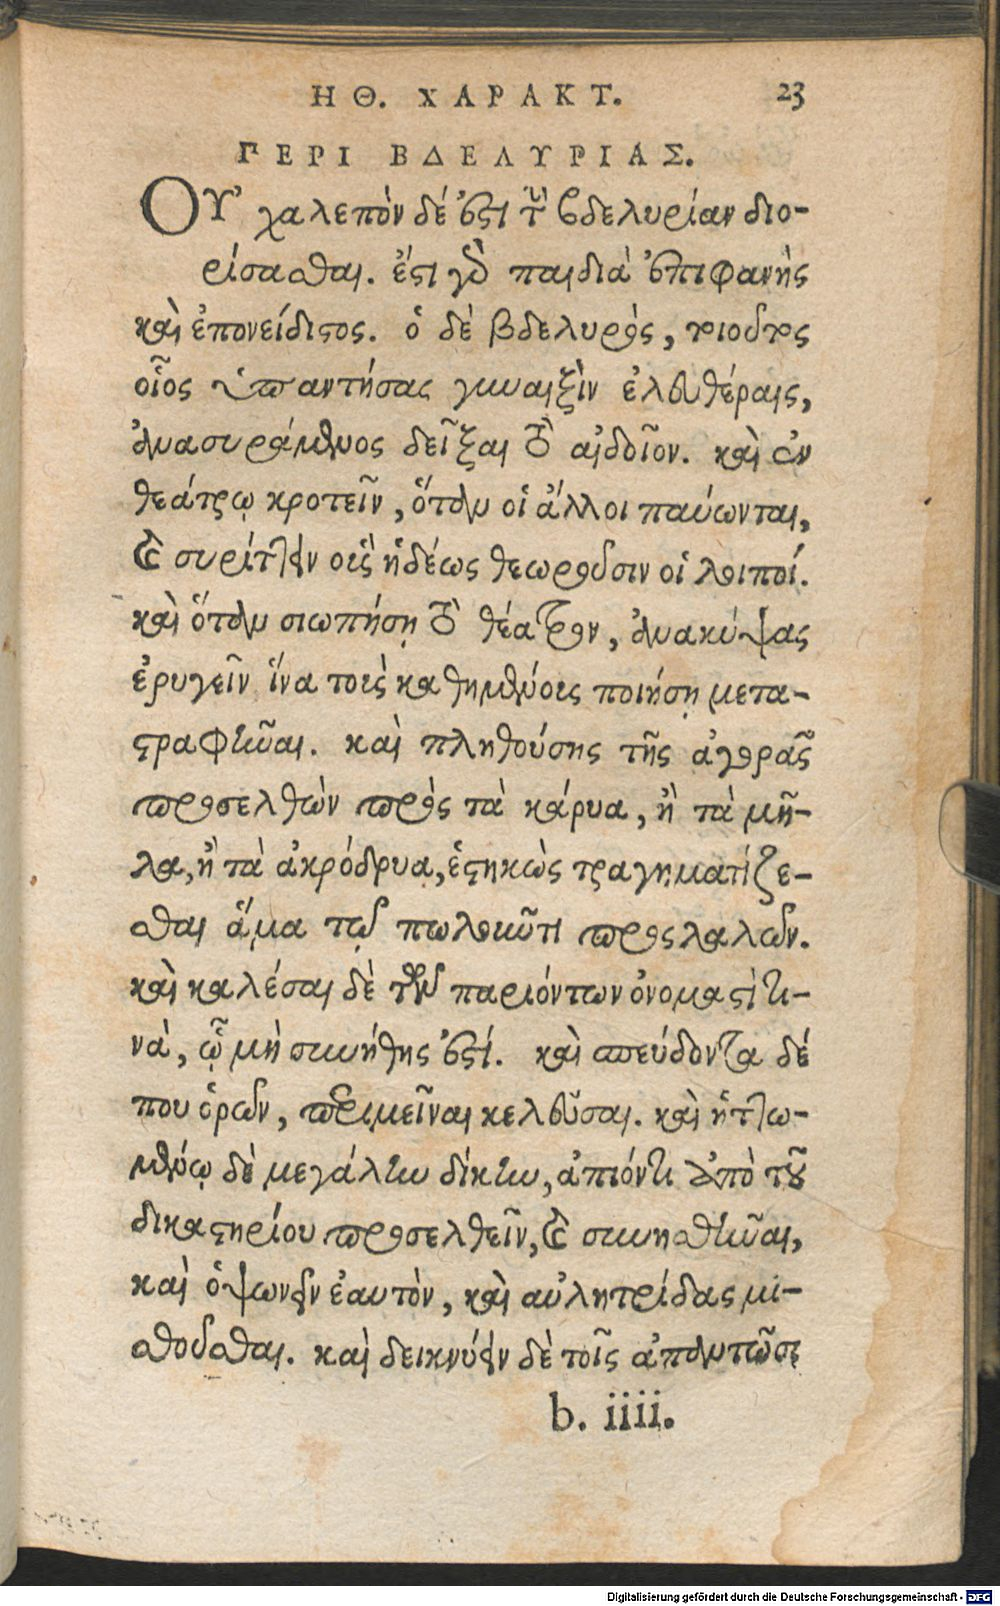 ΗΘ. ΧΑΡΑΚΤ. 23
ΠΕΡΙ ΒΔΕΛΥΡΙΑΣ.
Οὐ χαλεπὸν δέ ἐστι τὴν βδελυρίαν διο-
ρίσασθαι. ἔστι γὰρ παιδιὰ ἐπιφανὴς
καὶ ἐπονείδιστος. ὁ δὲ βδελυρὸς, τοιοῦτος
οἷος ὑπαντήσας γυναιξὶν ἐλευθέραις,
ἀνασυράμενος δεῖξαι τὸ αἰδοῖον. καὶ ἐν
θεάτρῳ κροτεῖν, ὅταν οἱ ἄλλοι παύωνται,
καὶ συρίττειν οὓς ἡδέως θεωροῦσιν οἱ λοιποί.
καὶ ὅταν σιωπήσῃ τὸ θέατρον, ἀνακύψας
ἐρυγεῖν ἵνα τοὺς καθημένους ποιήσῃ μετα-
στραφῆναι. καὶ πληθούσης τῆς ἀγορᾶς
προσελθὼν πρὸς τὰ κάρυα, ἢ τὰ μῆ-
λα, ἢ τὰ ἀκρόδρυα, ἑστηκὼς τραγηματίζε-
σθαι ἅμα τῷ πωλοῦντι προςλαλῶν.
καὶ καλέσαι δὲ τῶν παριόντων ὀνομαστὶ τι-
νὰ, ᾧ μὴ συνήθης ἐστί. καὶ σπεύδοντα δέ
που ὁρῶν, περιμεῖναι κελεῦσαι. καὶ ἡττω-
μένῳ δὲ μεγάλην δίκην, ἀπιόντι ἀπὸ τοῦ
δικαστηρίου προσελθεῖν, καὶ συνησθῆναι,
καὶ ὀψωνεῖν ἑαυτὸν, καὶ αὐλητρίδας μι-
σθοῦσθαι. καὶ δεικνύειν δὲ τοῖς ἀπαντῶσι
b. iiii.
Digitalisierung gefördert durch die Deutsche Forschungsgemeinschaft - DFG